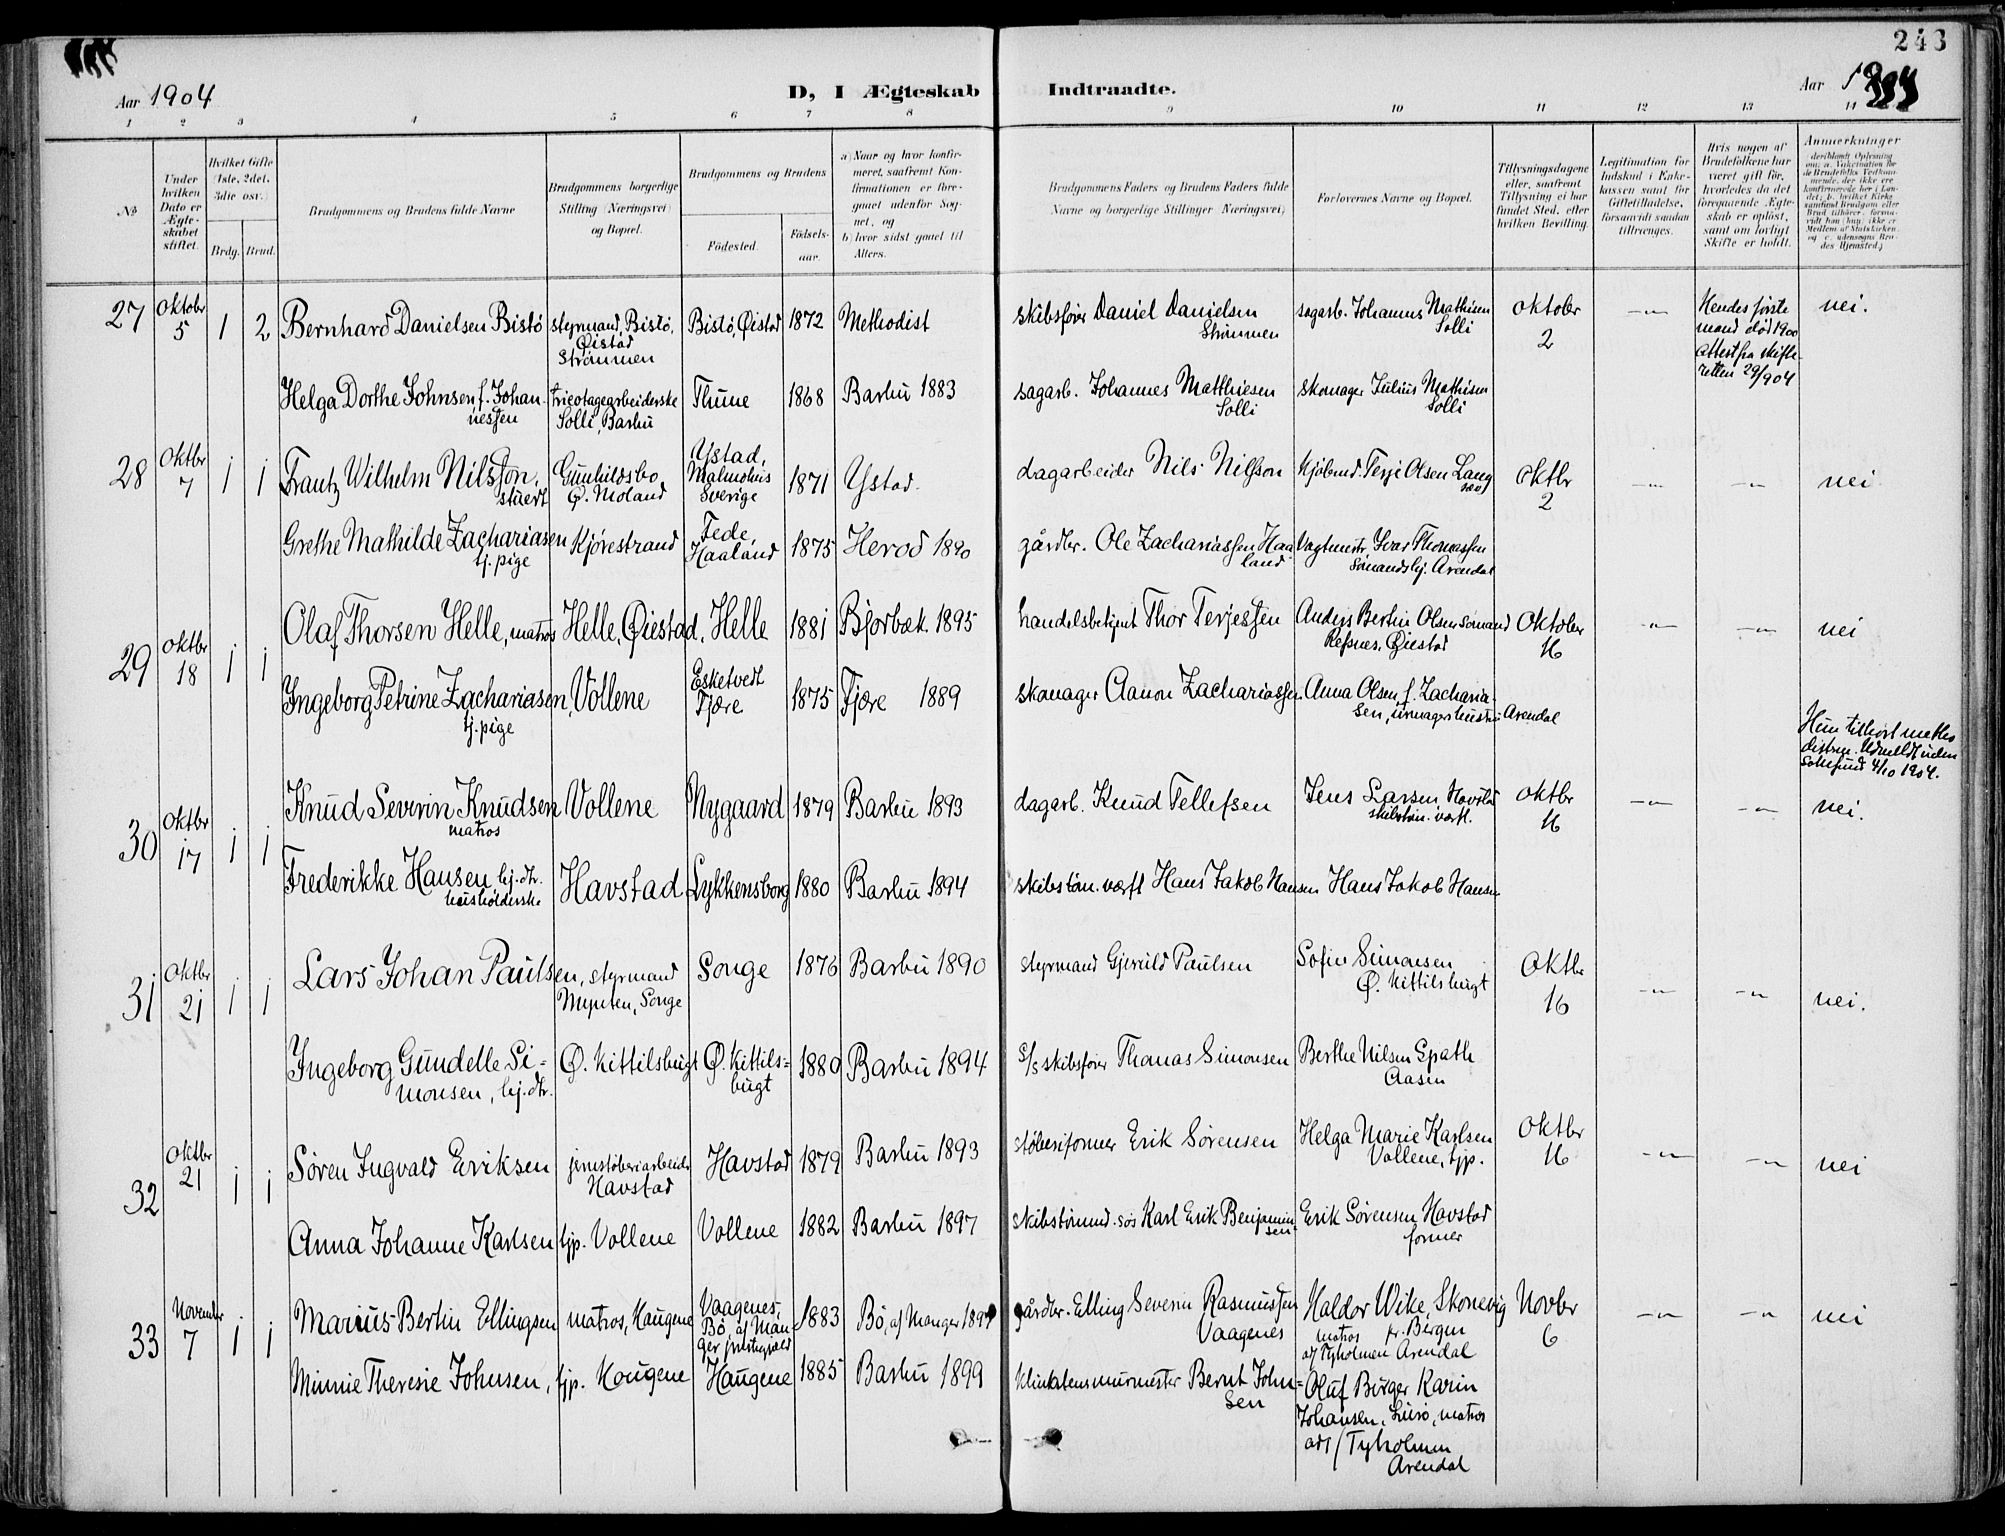 243
Aar 1904
D, I Ægteskab Indtraadte.
Aar
1 2 3 4 5 6 7 8 9 10 11 12 13 14
№
Under hvilken Dato er Ægteskabet stiftet.
Hvilket Gifte (1ste, 2det, 3die osv.)
Brdg. Brud.
Brudgommens og Brudens fulde Navne
Brudgommens borgerlige Stilling (Næringsvei) og Bopæl.
Brudgommens og Brudens
Födested.
Födselsaar.
a) Naar og hvor konfirmeret, saafremt Konfirmationen er foregaaet udenfor Sognet, og
b) hvor sidst gaaet til Alters.
Brudgommens Faders og Brudens Faders fulde Navne og borgerlige Stillinger (Næringsvei)
Forlovernes Navne og Bopæl.
Tillysningsdagene eller, saafremt Tillysning ei har fundet Sted, efter hvilken Bevilling.
Legitimation for Indskud i Enkekassen samt for Giftetilladelse, forsaavidt saadan tiltrænges.
Hvis nogen af Brudefolkene har været gift før, hvorledes da det foregaaende Ægteskab er opløst, samt om lovligt Skifte er holdt.
Anmærkninger
27 Oktober 5 1 2 Bernhard Danielsen Bistö styrmand, Bistö, Øistad Strömmen Bistö, Øistad 1872 Methodist skibsfører Daniel Danielsen Strömmen sagarb. Johannes Mathisen Solli Oktober 2 —"— Hendes første mand död 1900 Attest fra skifteretten 29/904 nei.
Helga Dorthe Johnsen f. Johannessen tricotagearbeiderske Solli, Barbu Thune 1868 Barbu 1883 sagarb. Johannes Matthiesen Solli skomager Julius Mathisen Solli
28 Oktbr 7 1 1 Frantz Wilhelm Nilsson, stuert Gunhildsbo Ø. Moland Ystad, Malmøhus Sverige 1871 Ystad. dagarbeider Nils Nilsson Kjöbmd. Terje Olsen Langsæv Oktbr 2 —"— —"— nei
Grethe Mathilde Zachariasen tj. pige Kjørestrand Fede, Haaland 1875 Herod 1890 gårdbr. Ole Zachariassen Haaland Vagtmestr. Ivar Thomassen Sømandshj. Arendal
29 Oktbr 18 1 1 Olaf Thorsen Helle, matros Helle, Øiestad, Helle 1881 Bjorbæk 1895 handelsbetjent Thor Terjessen Anders Bertin Olsen sömand Refsnes, Øiestad Oktober 16 —"— —"— nei
Ingeborg Petrine Zachariasen, tj. pige Vollene Esketvedt Fjære 1875 Fjære 1889 skomager Aanon Zachariassen Anna Olsen, f. Zachariasen, urmagerhustru Arendal
Hun tilhørt methodistm. Udmeldt uden
4/10 1904.
30 Oktbr 17 1 1 Knud Severin Knudsen matros Vollene Nygaard 1879 Barbu 1893 dagarb. Knud Tellefsen Jens Larsen, Havstad skibstøm. værft. Oktbr 16 —"— —"— nei.
Frederikke Hansen hj. dtr. husholderske Havstad Lykkensborg 1880 Barbu 1894 skibstøm. værft Hans Jakob Hansen Hans Jakob Hansen
31 Oktbr 21 1 1 Lars Johan Paulsen, styrmand Mynten, Songe Songe 1876 Barbu 1890 styrmand Gjeruld Paulsen Sofie Simonsen Ø. Kittilsbugt Oktbr 16 —"— —"— nei.
Ingeborg Gundelle Simonsen, hj. dtr. Ø. Kittilsbugt Ø. Kittilsbugt 1880 Barbu 1894 s/s skibsfører Thomas Simonsen Berthe Nilsen Aasen
32 Oktbr 21 1 1 Søren Ingvald Eriksen jernstøberiarbeider Havstad Havstad 1879 Barbu 1893 støberiformer Erik Sørensen Helga Marie Karlsen Vollene, tjp. Oktbr 16 —"— —"— nei
Anna Johanne Karlsen tjp. Vollene Vollene 1882 Barbu 1897 skibstømmd. Karl Erik Benjaminsen Erik Sørensen Havstad former
33 November 7 1 1 Marius Bertin Ellingsen matros, Haugene Vaagenes, Bö, af Manger præstegjæld 1883 Bö, af Manger gårdbr. Elling Severin Rasmussen Vaagenes Haldor Wike, Skonevig pr. Bergen matros Tyholmen Arendal Novbr 6 —"— —"— nei
Minnie Theresie Johnsen, tjp. Haugene Haugene 1885 Barbu 1899 murmester Bernt Johnsen Oluf Birger Karin Johansen, matros Tyholmen Arendal